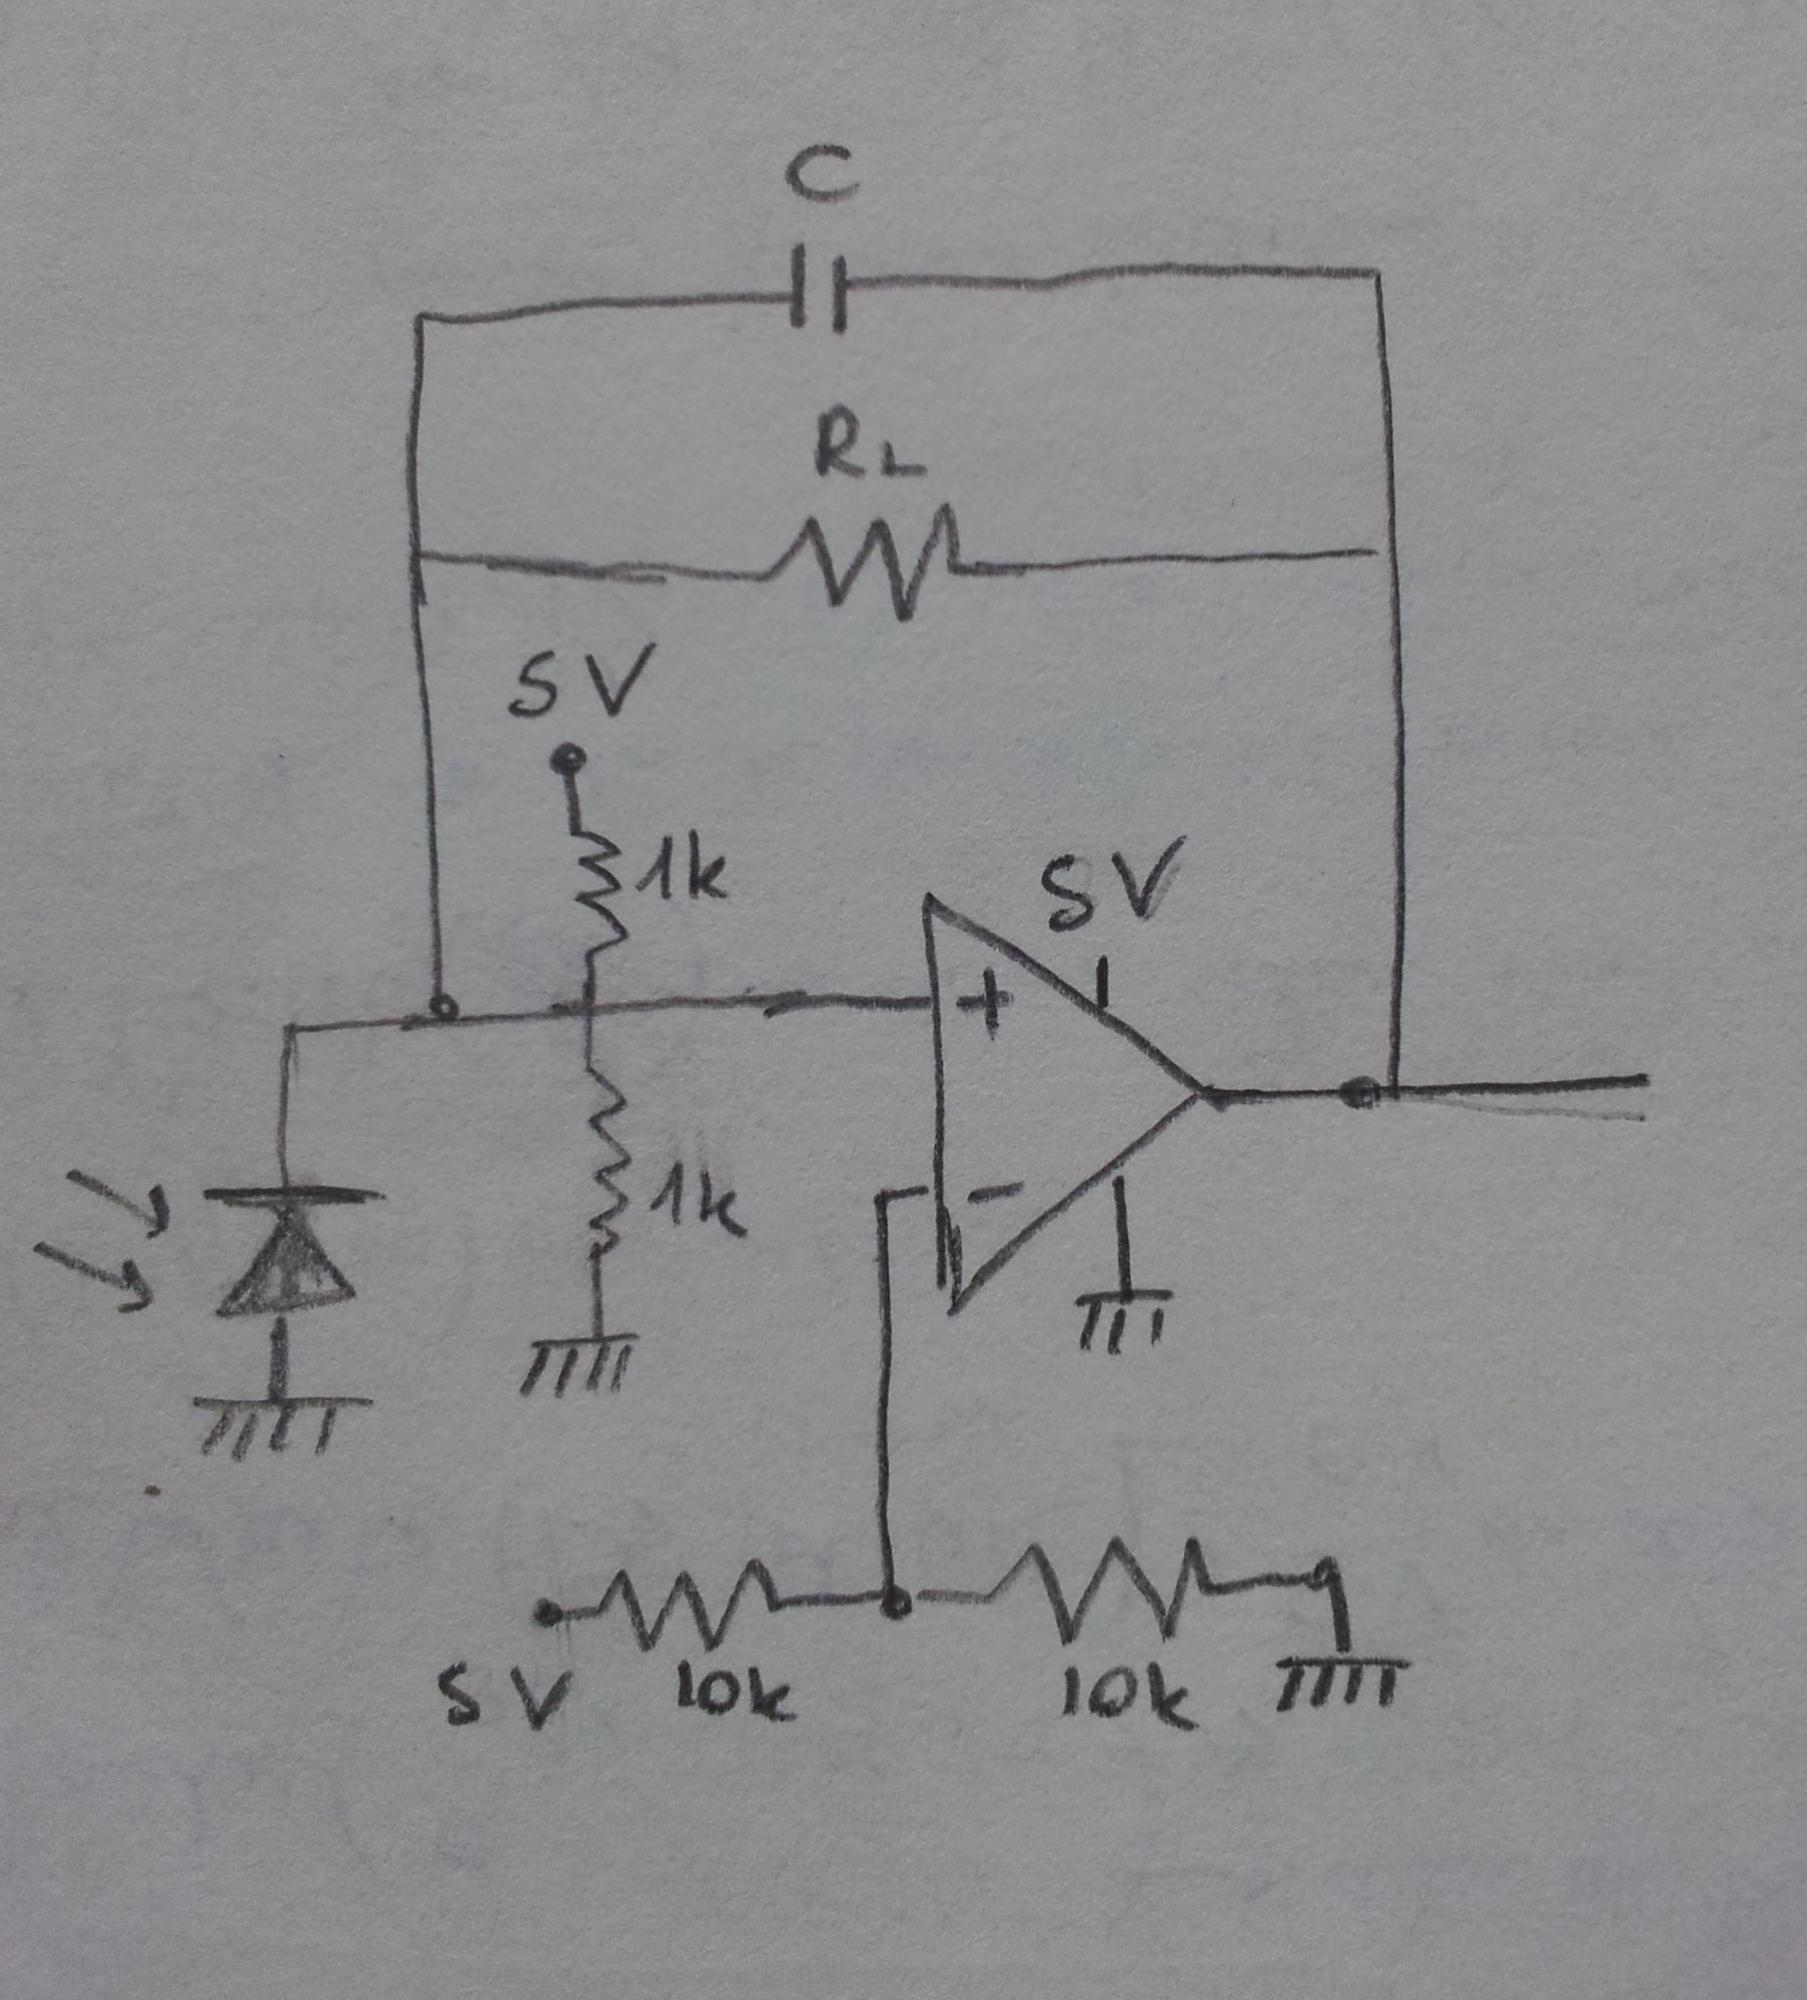 C
RL
5V
1k
5V
+
1k
-
5V
10k
10k